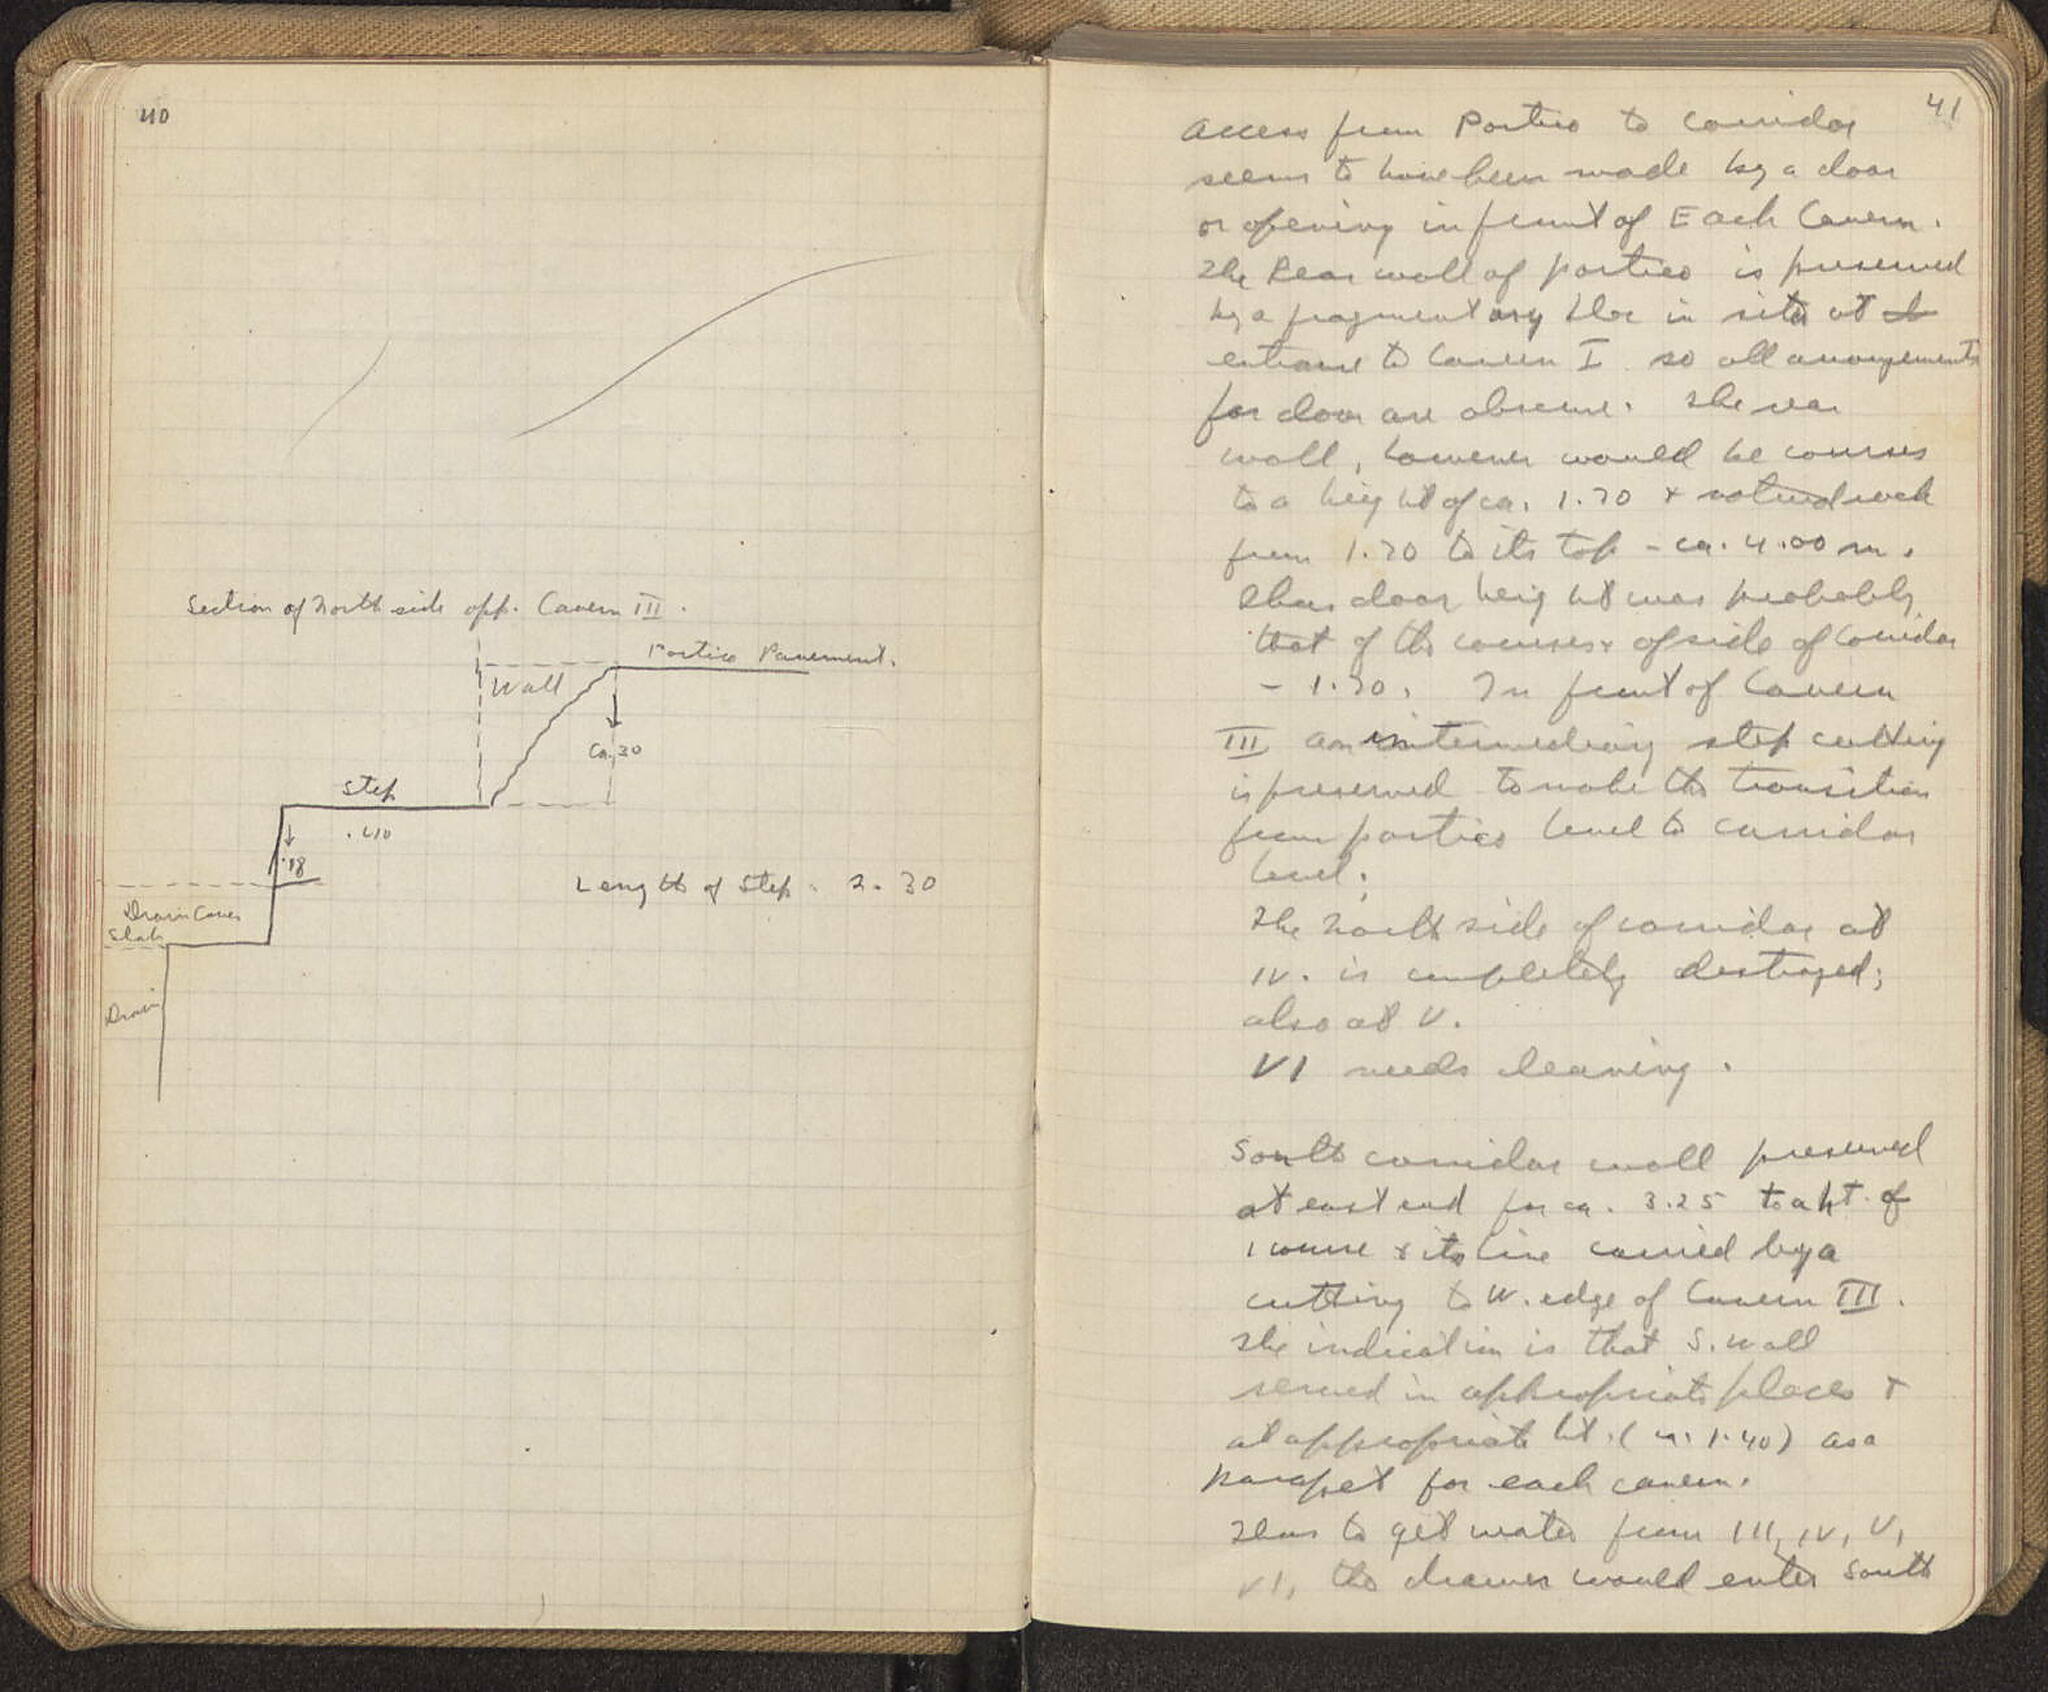 40
Section of North side opp. Cavern III.
Portico Pavement.
Wall
Ca. 30
Step
.40
.18
Length of Step. 2.30
Drain Cover
Slab
Drain
41
Access from Portico to corridor
seems to have been made by a door
or opening in front of Each Cavern.
The Rear wall of portico is preserved
by a fragmentary bloc in situ at
entrance to Cavern I so all arrangements
for door are obscure. The rear
wall, however would be courses
to a height of ca. 1.70 + natural rock
from 1.70 to its top - ca. 4.00 m.
Thus door height was probably
that of the courses + of side of corridor
- 1.70. In front of Cavern
III an intermediary step cutting
is preserved to make the transition
from portico level to corridor
level.
The North side of corridor at
IV. is completely destroyed;
also at V.
VI needs cleaning.
South corridor wall preserved
at east end for ca. 3.25 to a ht. of
1 course + its line carried by a
cutting to W. edge of Cavern III.
The indication is that S. wall
served in appropriate places +
at appropriate ht. (ca. 1.40) as a
parapet for each cavern.
Thus to get water from III, IV, V,
VI, the drawer would enter South